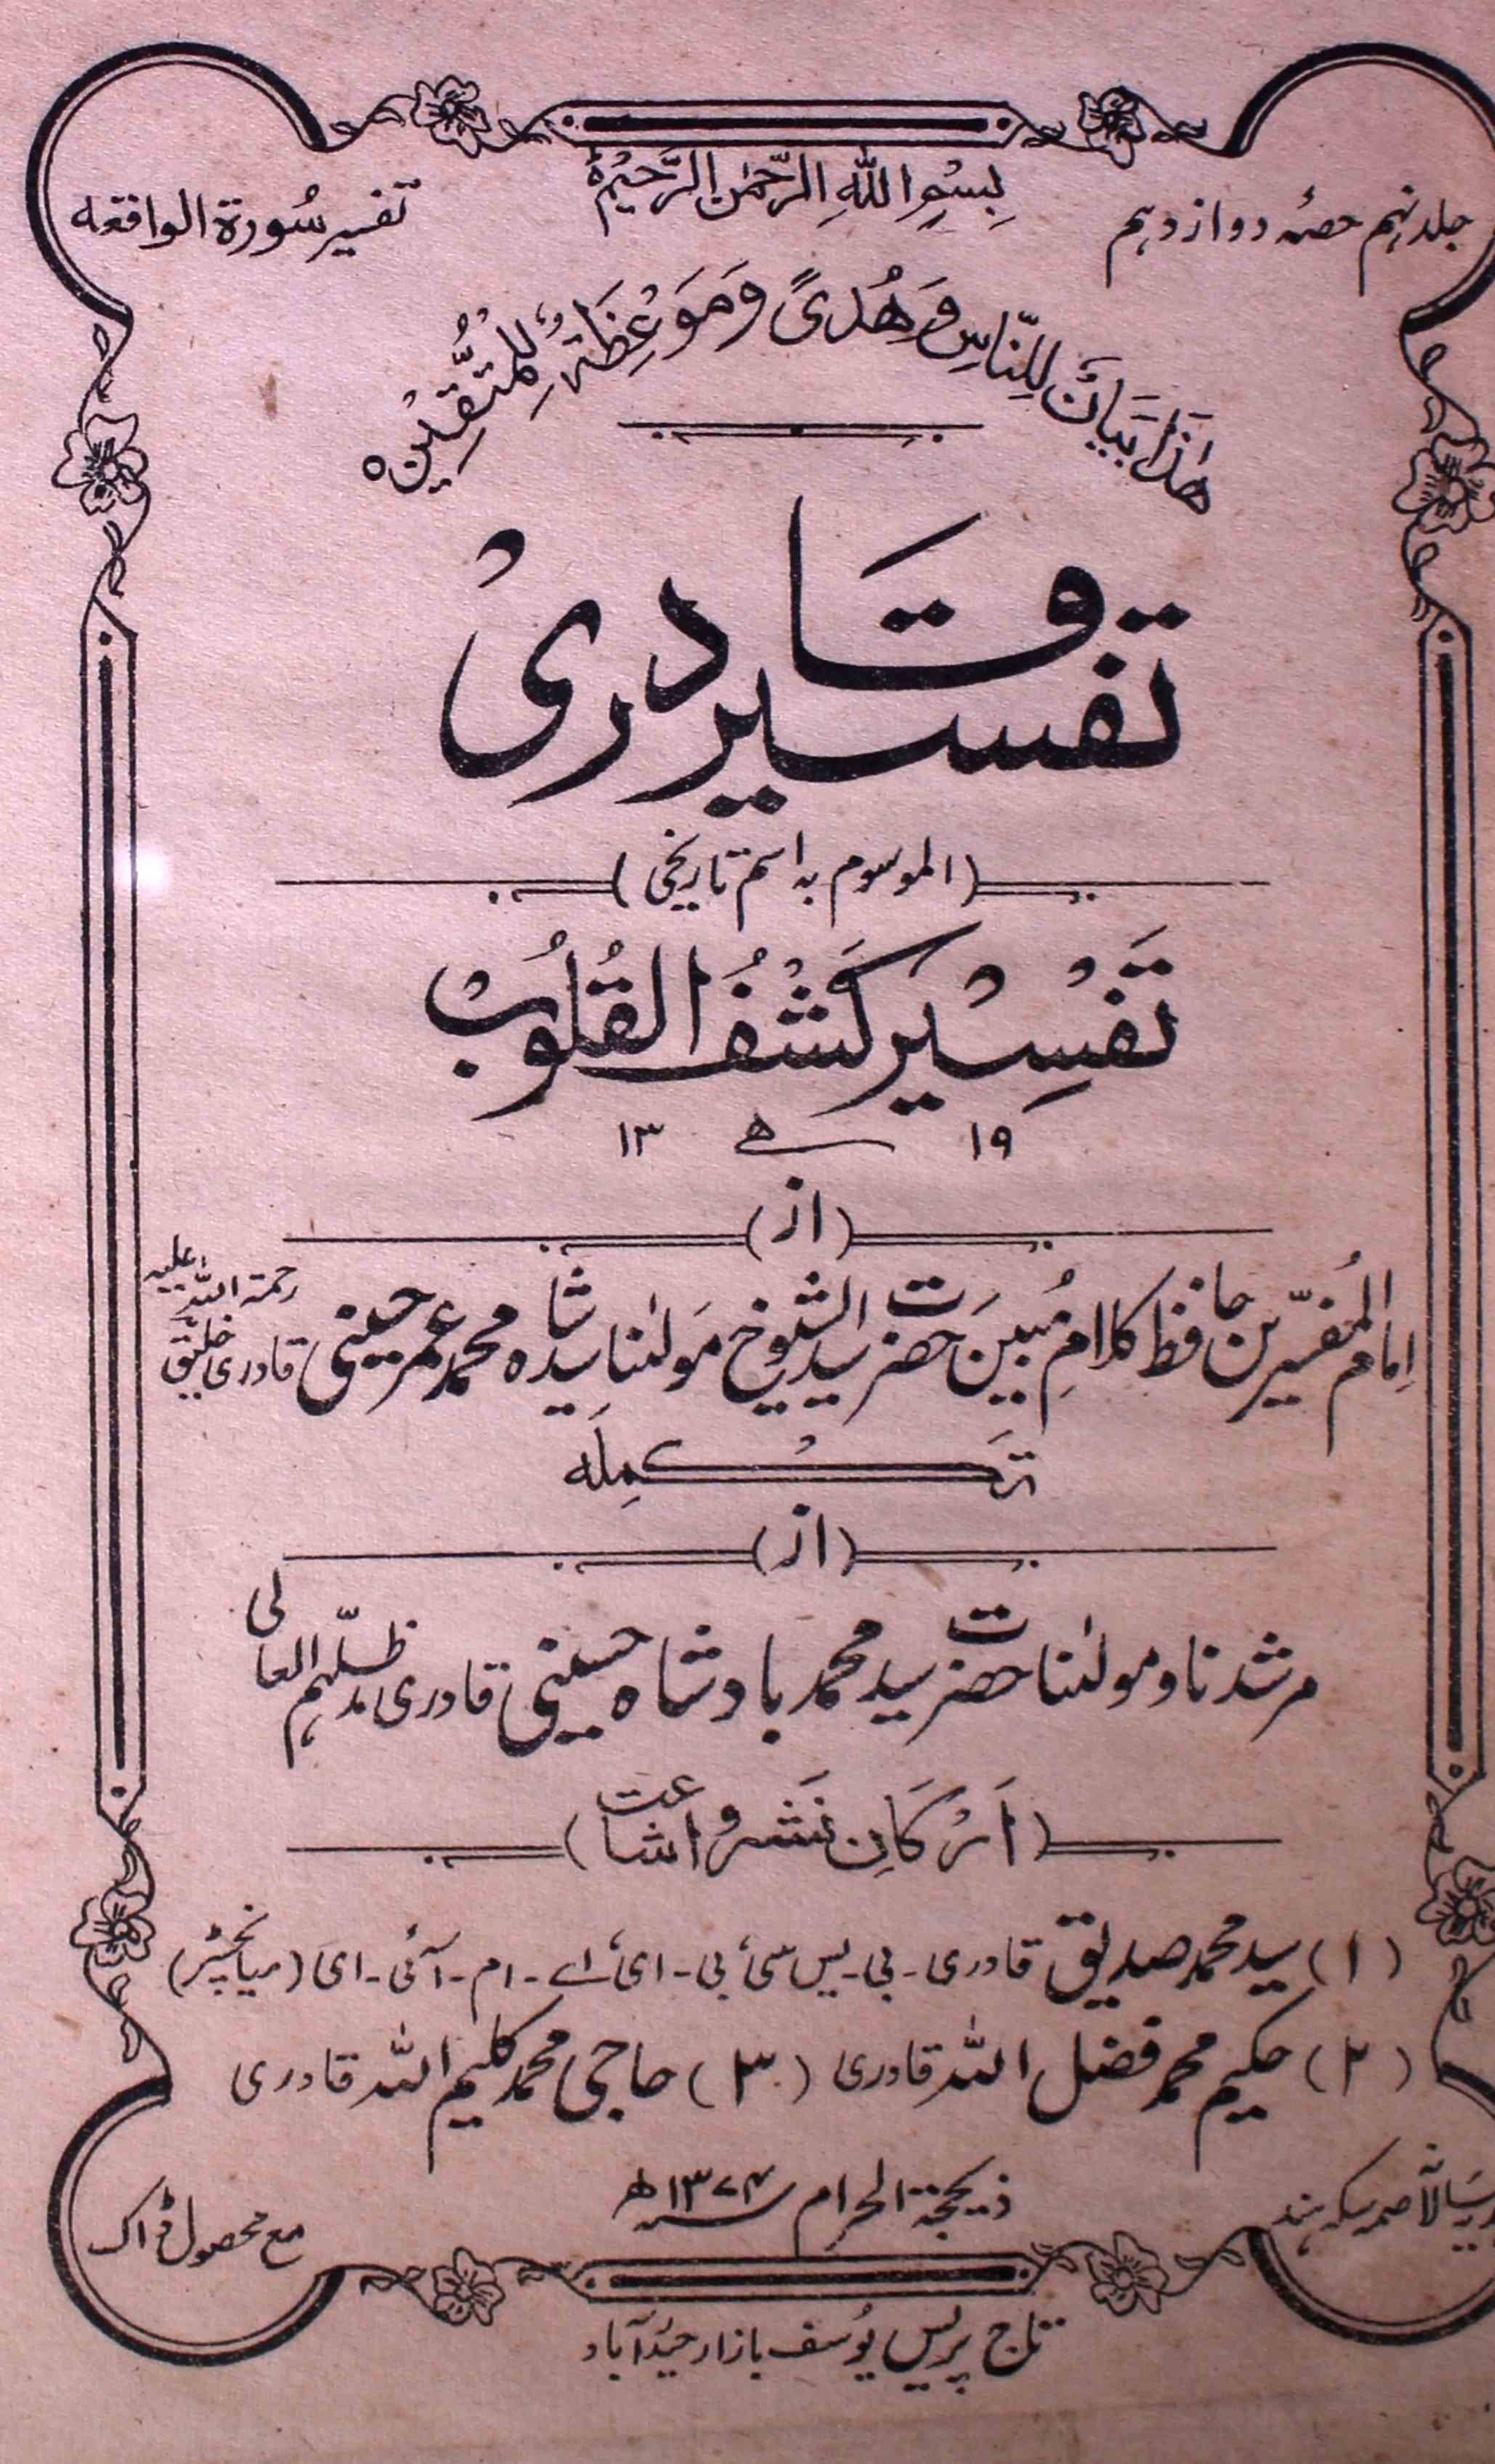 جلد نہم حصۂ دوازدہم
بِسْمِ اللّٰهِ الرَّحْمٰنِ الرَّحِيْمِ
تفسیر سُورۃ الواقعہ
هٰذَا بَيَانٌ لِّلنَّاسِ وَهُدًى وَّمَوْعِظَةٌ لِّلْمُتَّقِيْنَ ہ
تفسیر قادری
(الموسوم بہ اسم تاریخی)
تَفْسِیْر کَشْفُ الْقُلُوْب
۱۹ ھ ۱۳
(از)
اِمام المُفسّرین حافظ کلامِ مُبین حضرت سید الشیوخ مَولٰنا سید شاہ محمد عمر حسینی قادری خلیق رحمۃ اللہ علیہ
تَکْمِلَہ
(از)
مرشدنا و مولٰنا حضرت سید محمد بادشاہ حسینی قادری مدظلہم العالی
(اَرْکَانِ نَشر و اشاعت)
(۱) سید محمد صدیق قادری - بی - یس سی، بی - ای، اے - ام - آئی - ای (میانچپٹر)
(۲) حکیم محمد فضل اللہ قادری (۳) حاجی محمد کلیم اللہ قادری
ذیحجۃ الحرام ۱۳۷۴ھ
سکہ ہند
مع محصول ڈاک
تاج پریس یُوسف بازار حیدرآباد